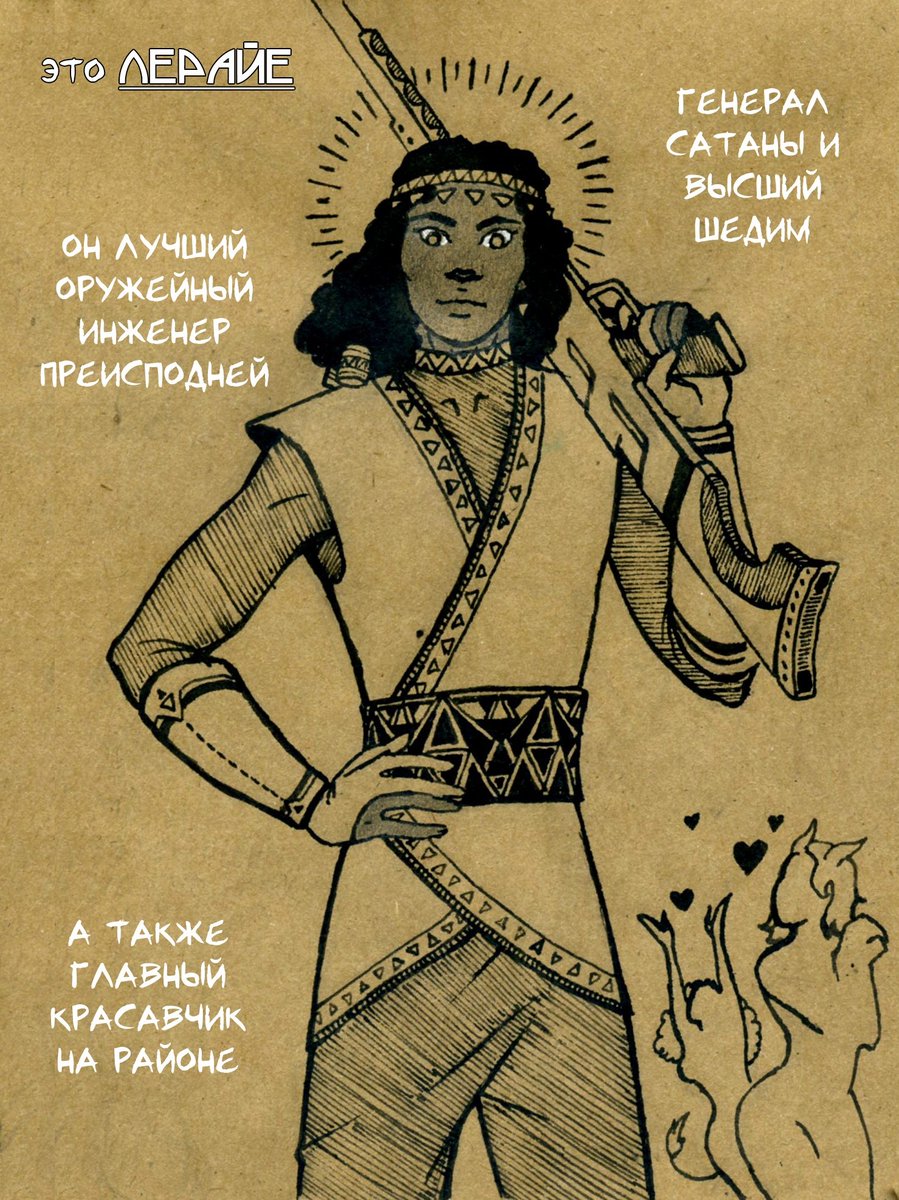 ЭТО ЛЕРАЙЕ
ГЕНЕРАЛ
САТАНЫ И
ВЫСШИЙ
ШЕДИМ
ОН ЛУЧШИЙ
ОРУЖЕЙНЫЙ
ИНЖЕНЕР
ПРЕИСПОДНЕЙ
А ТАКЖЕ
ГЛАВНЫЙ
КРАСАВЧИК
НА РАЙОНЕ